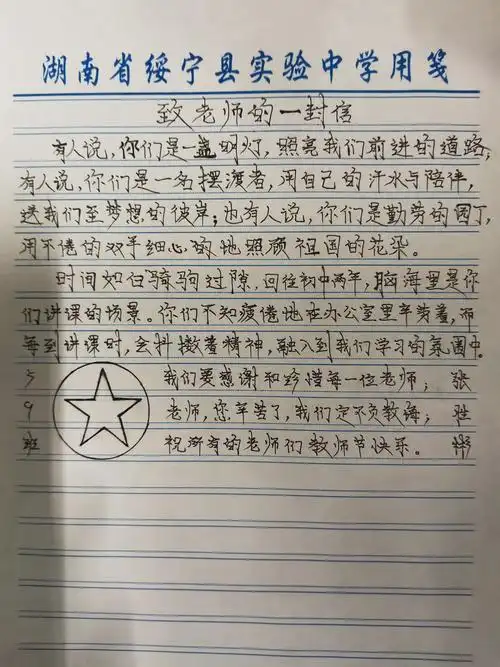 湖南省绥宁县实验中学用笺
致老师的一封信
有人说,你们是一盏明灯,照亮我们前进的道路;
有人说,你们是一名摆渡者,用自己的汗水与陪伴,
送我们至梦想的彼岸;也有人说,你们是勤劳的园丁,
用不倦的双手细心的地照顾祖国的花朵。
时间如白骑驹过隙,回往初中两年,脑海里是你
们讲课的场景。你们不知疲倦地在办公室里辛劳着,而
每到讲课时,会抖擞着精神,融入到我们学习的氛围中。
5 我们要感谢和珍惜每一位老师; 张
9 老师,您辛苦了,我们定不负教诲; 胜
班 祝所有的老师们教师节快乐。